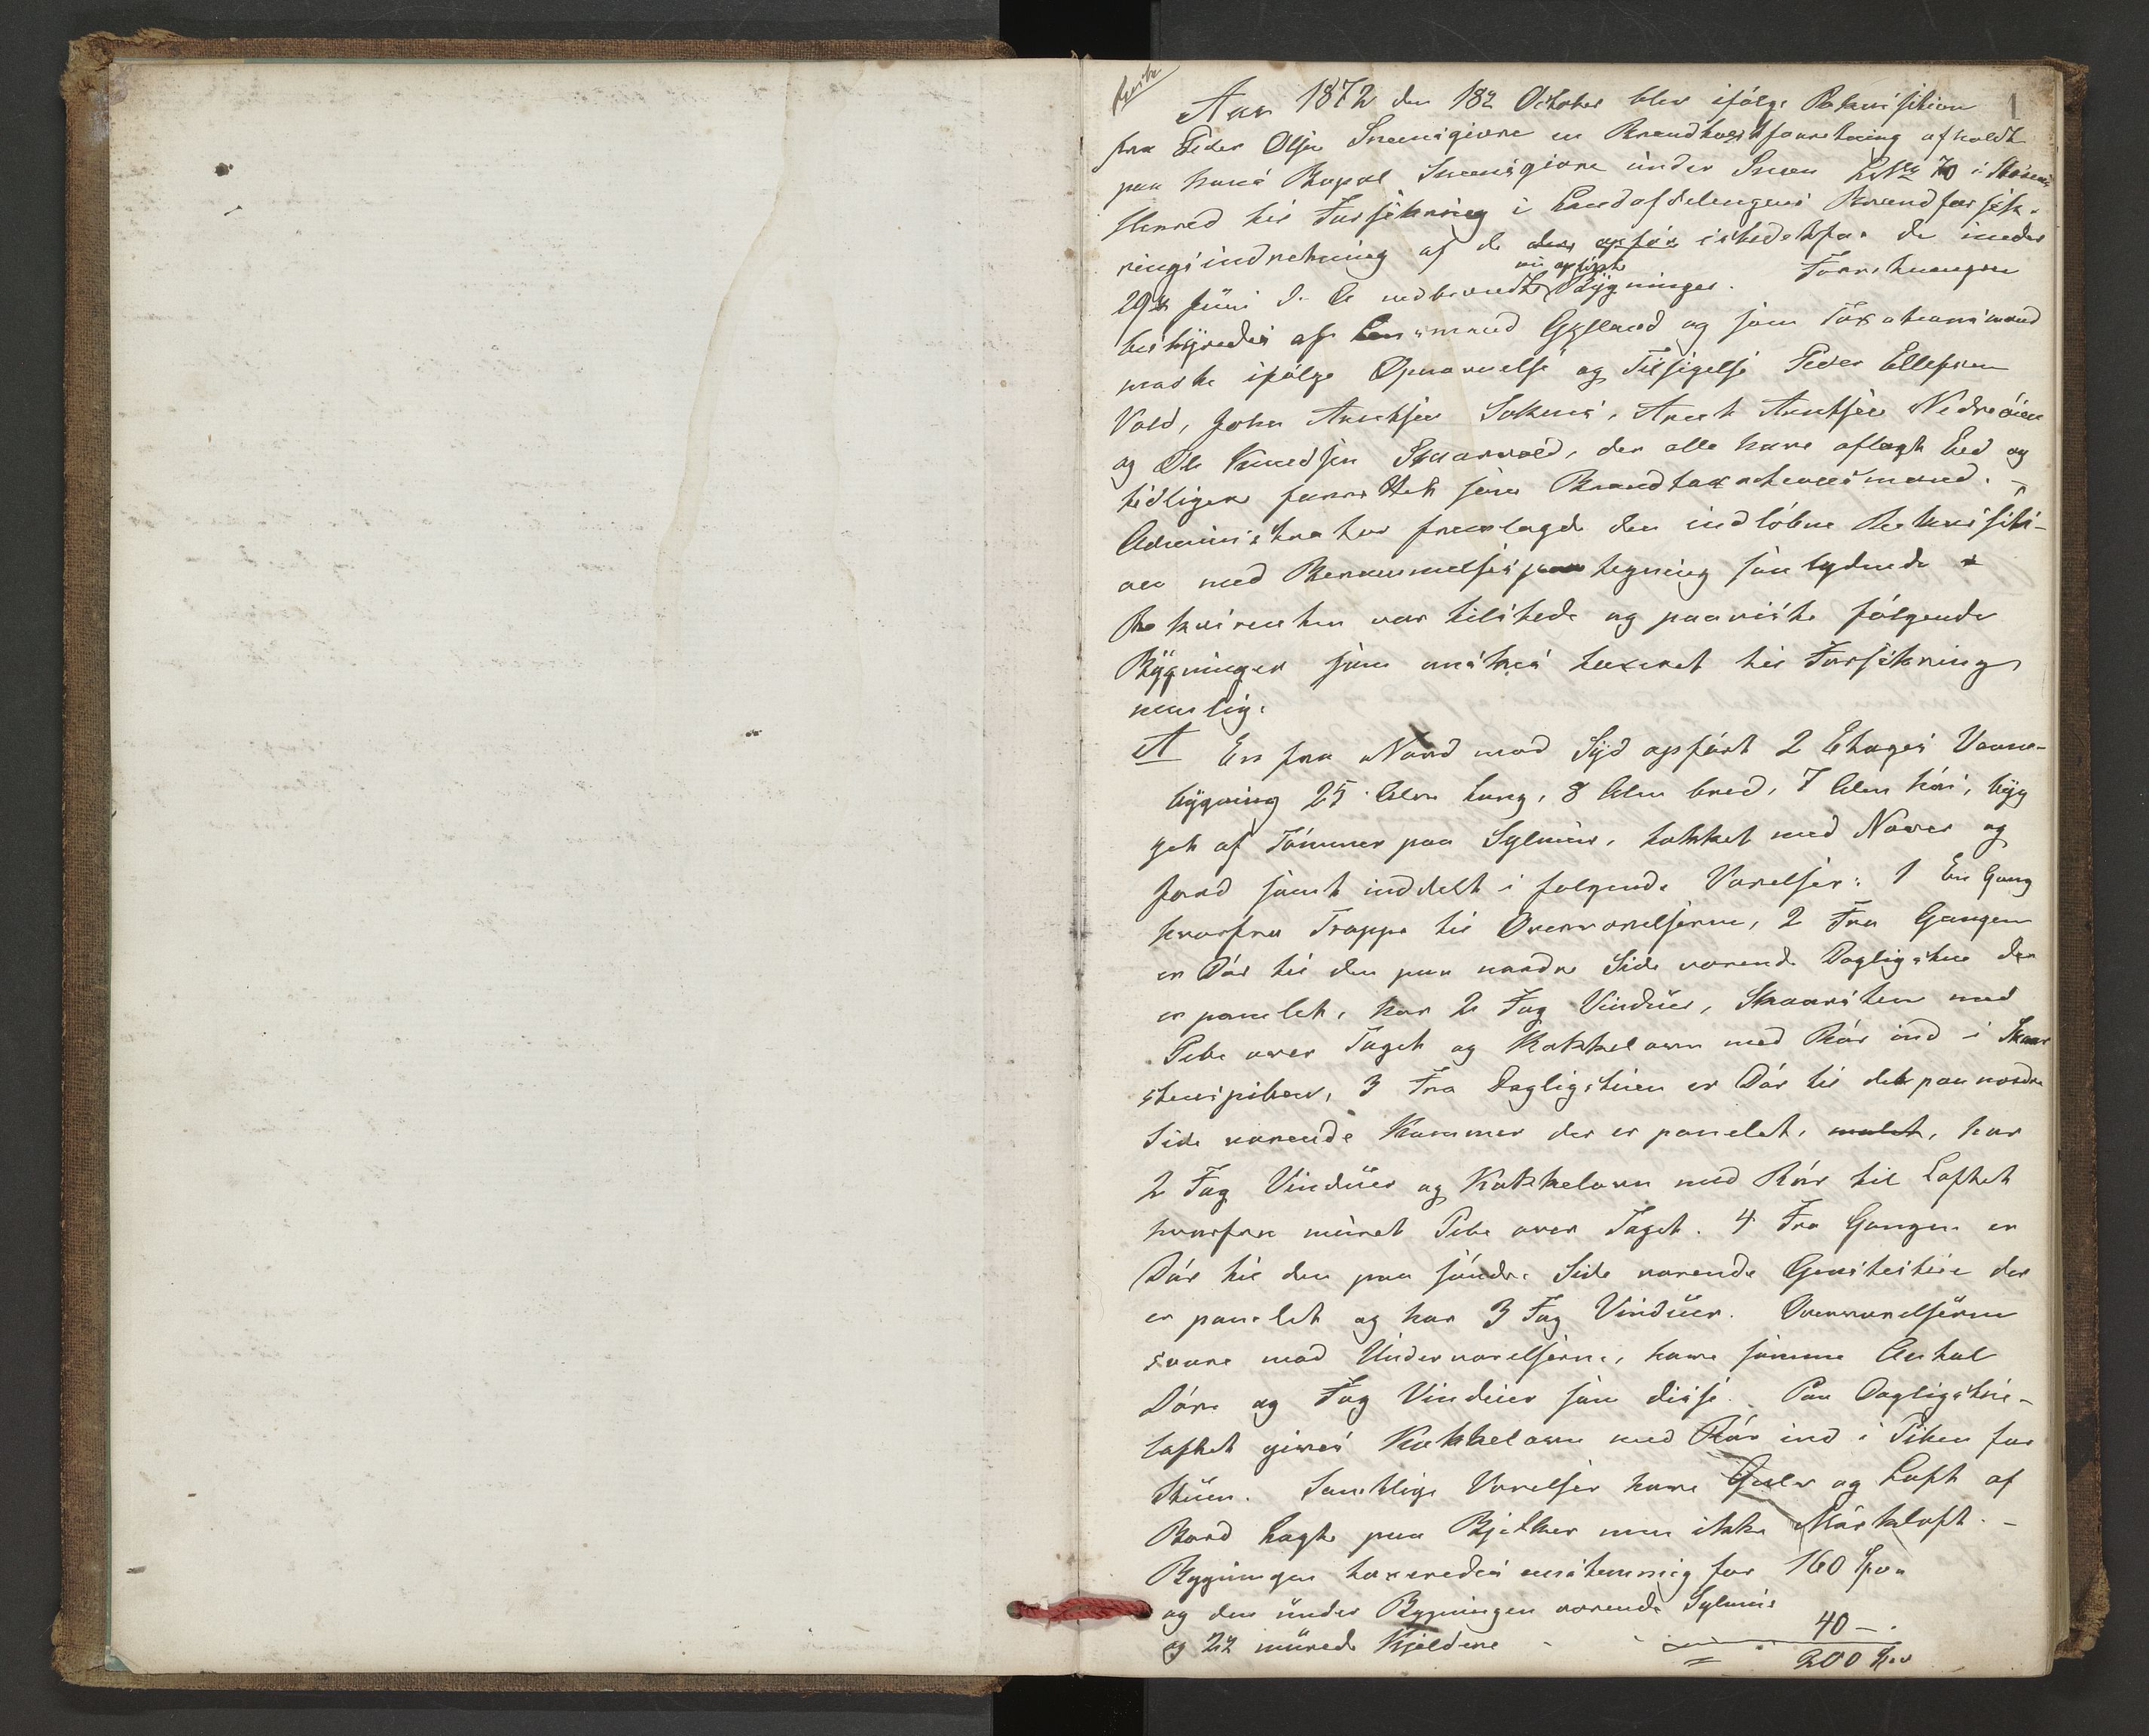 1
Aar 1872 den 18de October blev ifølge Rekvisition
fra Peder Olsen Snemsgjære en Brandtaxtforretning afholdt
paa hans Bopæl Snemsgjære under Snem LNo 70 i
Herred til Forsikring i Landafdelingens Brandforsik-
ringsindretning af de den opfør istedetfor de under
29de Juni d. A. nedbrændte nu opførte Bygninger. Forretningen
bestyredes af Lensmand Gylland og som Taxationsmænd
mødte ifølge Opnævnelse og Tilsigelse Peder Ellefsen
Vold, John Arntsen Solems, Arnt Arntsen Nedreøien
og Ole Knudsen Skarvold, der alle have aflagt Eed og
tidligere forrettet som Brandtaxationsmænd. –
Administrator fremlagde den indløbne Rekvisiti-
on med Berammelsespaategning saa lydende
Rekvirenten var tilstede og paaviste følgende
Bygninger som ønskes taxeret til Forsikring
nemlig:
A En fra Nord mod Syd opført 2 Etages Vaane-
bygning 25 Alen lang, 8 Alen bred, 7 Alen høi, byg
get af Tømmer paa Sylmur, tækket med Næver og
Jord samt inddelt i følgende Værelser: 1 En Gang
hvorfra Trappe til Overværelserne, 2 Fra Gangen
er Dør til den paa nordre Side værende Dagligstue der
er panelet, har 2 Fag Vinduer, Skaarsten med
Pibe over Taget og Kakkelovn med Rør ind i Skaar
stenspiben, 3 Fra Dagligstuen er Dør til det paa nordre
Side værende Kammer der er panelet, malet, har
2 Fag Vinduer og Kakkelovn med Rør til Loftet
hvorfra muret Pibe over Taget. 4 Fra Gangen er
Dør til den paa søndre Side værende Gjestestue der
er panelet og har 3 Fag Vinduer. Overværelserne
svare mod Underværelserne, have samme Antal
Døre og Fag Vinduer som disse. Paa Dagligstue-
loftet gives Kakkelovn med Rør ind i Piben for
Stuen. Samtlige Værelser have Gulv og Loft af
Bord lagt paa Bjelker men ikke Mørkloft. –
Bygningen taxeredes enstemmig for 160 Spd
og den under Bygningen værende Sylmur
og 22 murede Kjeldere 40 – .
200 Spd